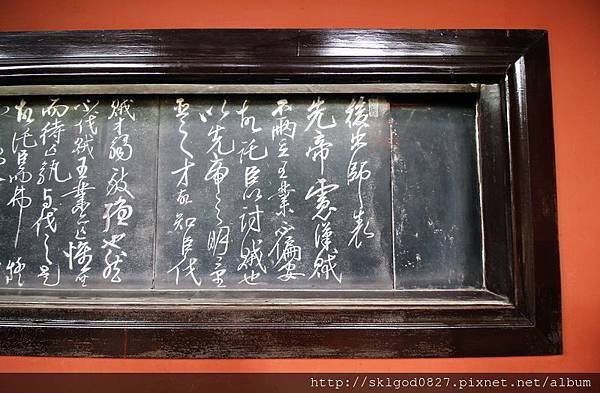 後出師表
先帝慮漢賊
不兩立王業不偏安
故託臣以討賊也
以先帝之明量
臣之才故知臣伐
賊才弱敵強也然
不伐賊王業亦亡惟坐
而待亡孰與伐之是
故託臣而弗疑
http://sklgod0827.pixnet.net/album